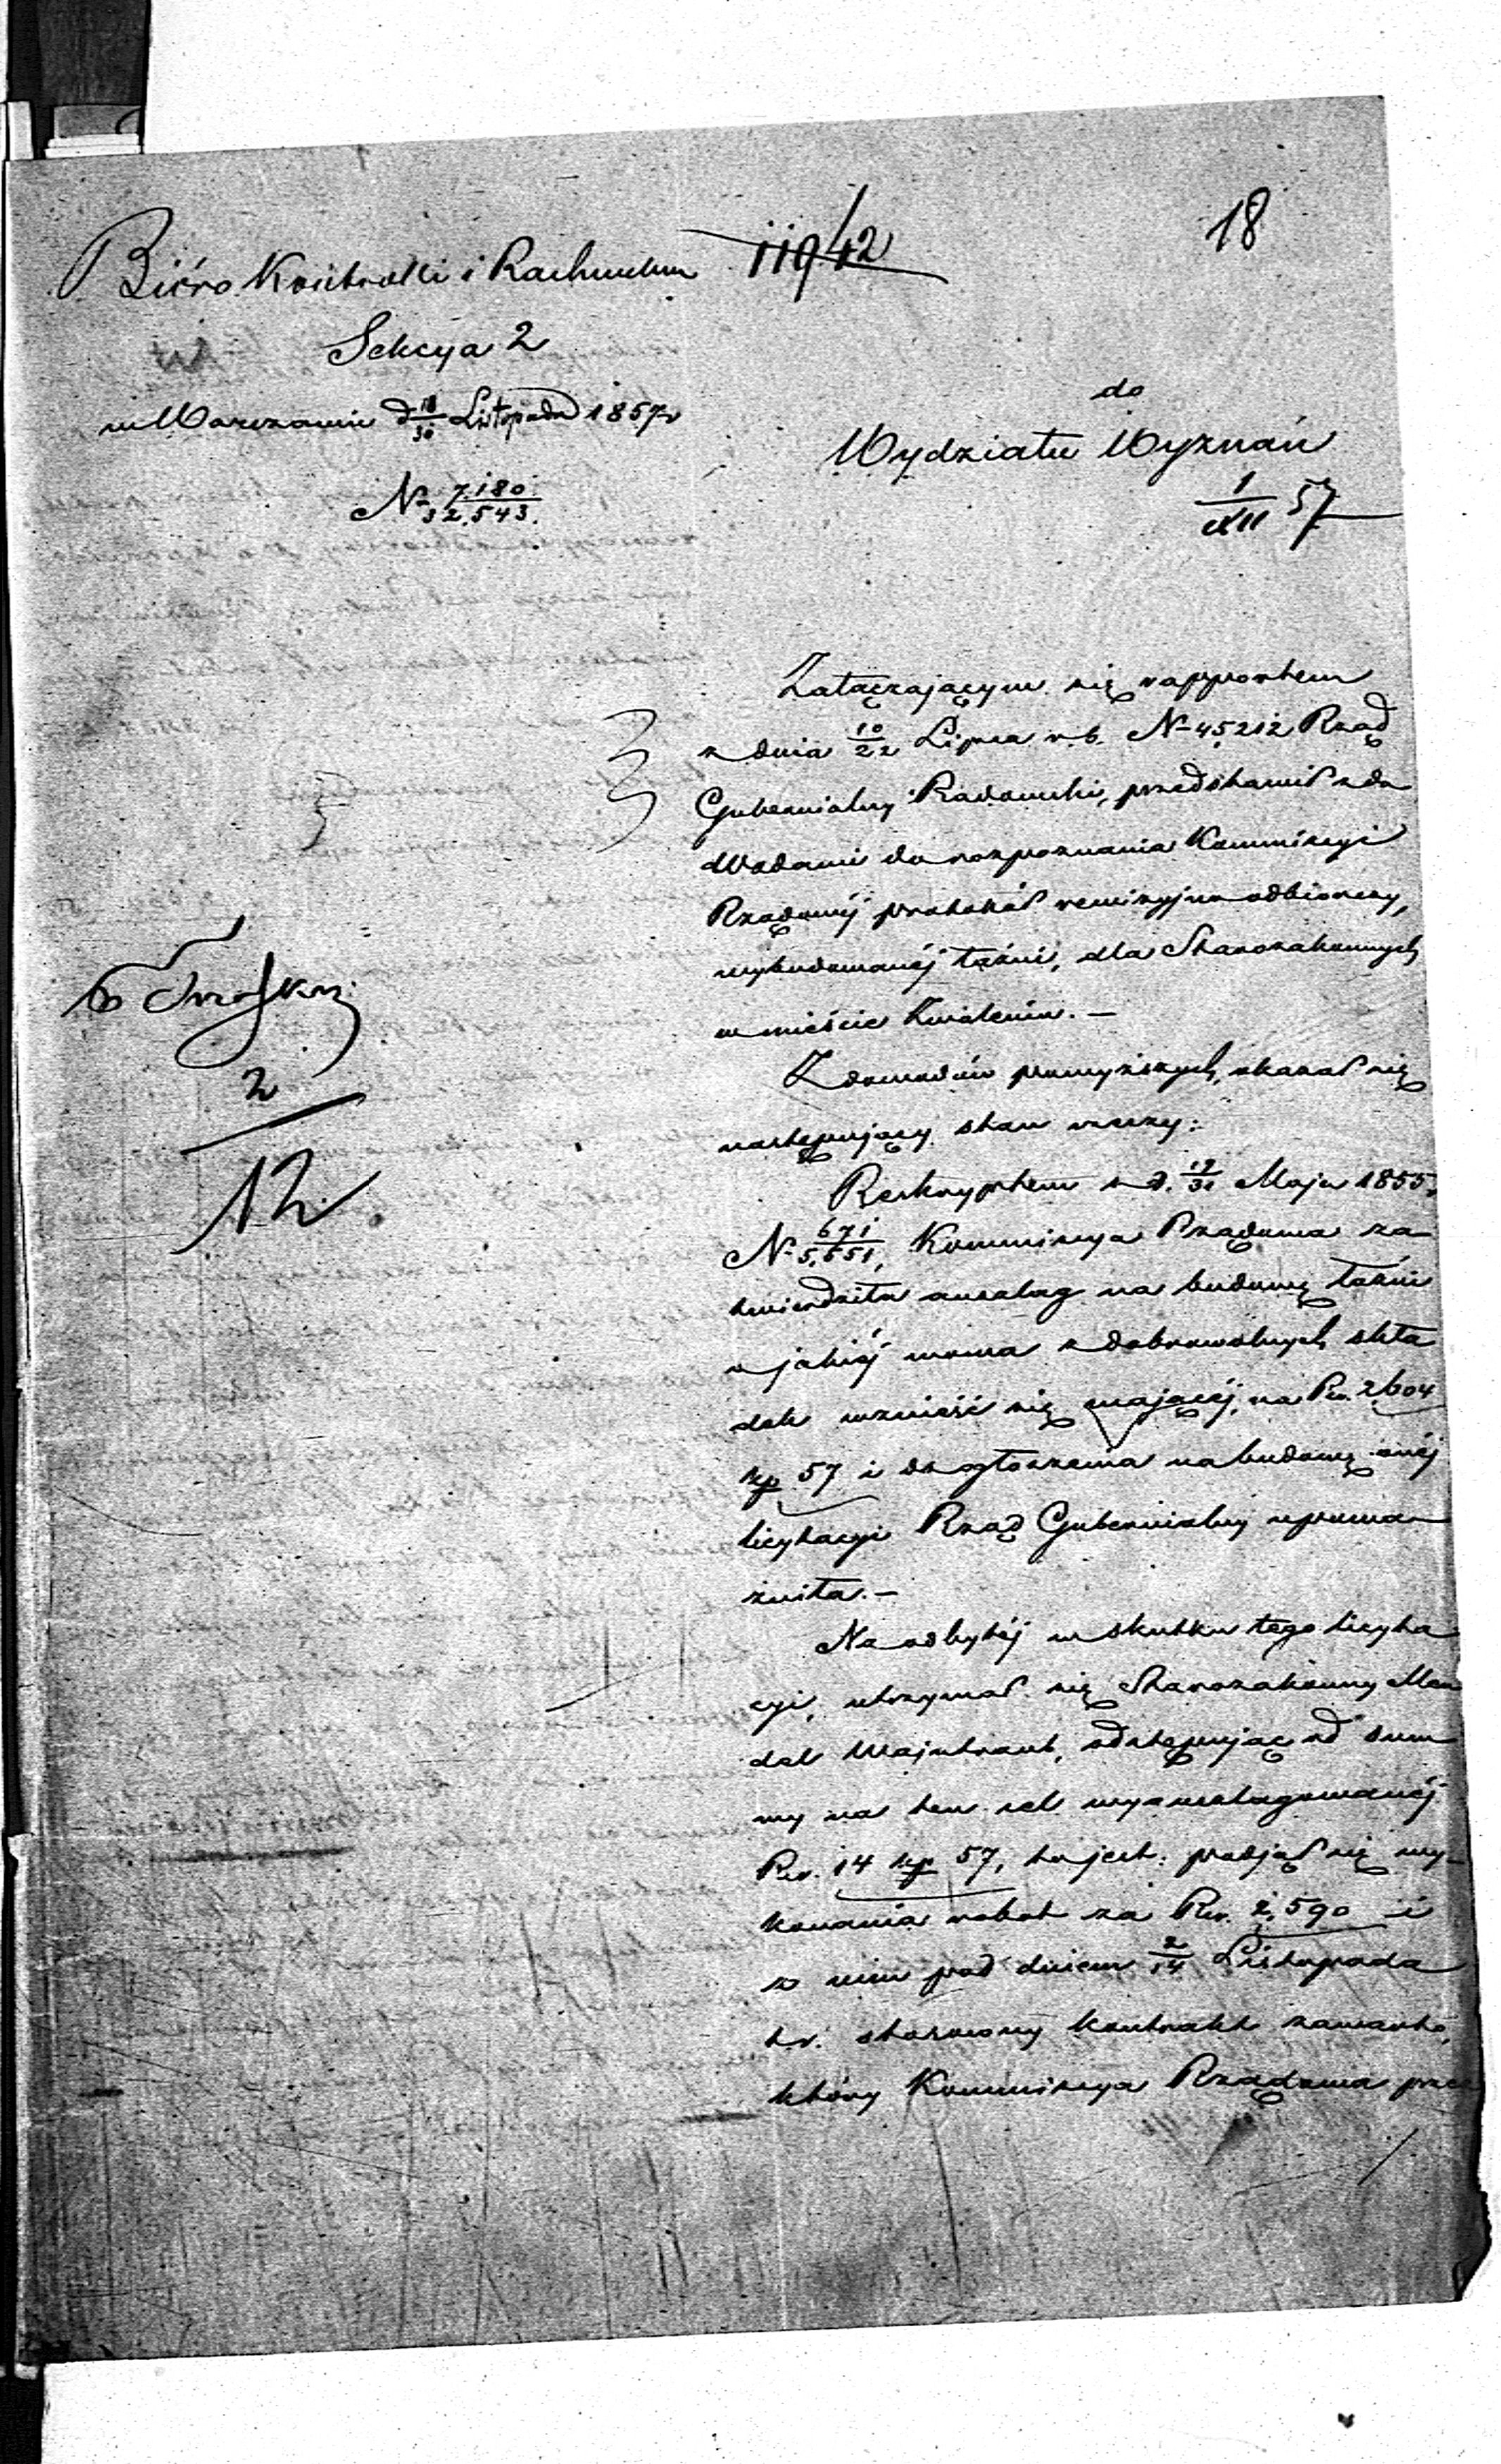 18
11942
Bióro Kontrolli i Rachunków
Sekcya 2
w Warszawie d 18/30 Listopada 1857 r
№ 7.180/32.543.
do
Wydziału Wyznań
1/XII 57
Załączającym się rapportem
z dnia 10/22 Lipca r. b. № 45,212 Rząd
Gubernialny Radomski, przedstawił z do
wodami do rozpoznania Kommissyi
Rządowéj protokół rewizyjno odbiorczy,
wybudowanéj łaźni, dla Starozakonnych
w mieście Zwoleniu. —
Z dowodów powyższych, okazał się
następujący stan rzeczy:
Reskryptem z d. 19/31 Maja 1855 r
№ 671/5,651, Kommissya Rządowa za
twierdziła anszlag na budowę łaźni
w jakiéj mowa z dobrowolnych skła
dek wznieść się mającéj, na Rs. 2,604
kp 57 i do ogłoszenia na budowę onéj
licytacyi Rząd Gubernialny upoważ
niła. —
Na odbytéj w skutku tego licyta
cyi, utrzymał się Starozakonny Men
del Wajntraub, odstępując od sum
my na ten cel wyanszlagowanéj
Rs. 14 kp 57, to jest: podjął się wy-
konania robot za Rs. 2,590 i
z nim pod dniem 2/14 Listopada
t. r. stosowny kontrakt zawarto,
który Kommissya Rządowa prze
2
12